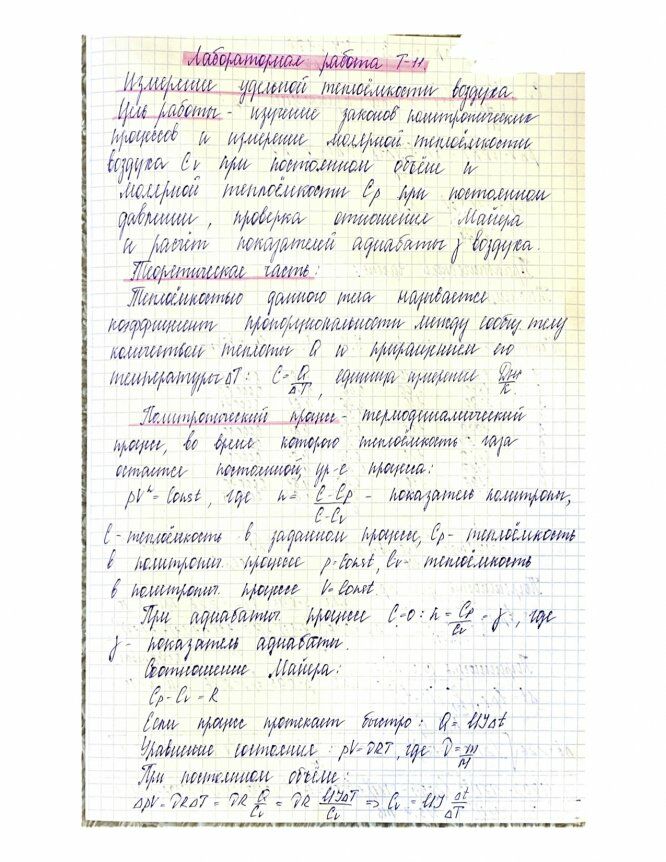 Лабораторная работа Т-11.
Измерение удельной теплоёмкости воздуха
Цель работы - изучение законов политропических
процессов и измерение молярной теплоёмкости
воздуха Cv при постоянном объёме и
молярной теплоёмкости Cp при постоянном
давлении, проверка отношения Майера
и расчёт показателей адиабаты γ воздуха.
Теоретическая часть:
Теплоёмкостью данного тела называется
коэффициент пропорциональности между сообщ. телу
количеством теплоты Q и приращением его
температуры ΔT: C = Q/ΔT, единица измерение Дж/К
Политропический процесс - термодинамический
процесс, во время которого теплоёмкость газа
остаётся постоянной, ур-е процесса:
pVⁿ = Const, где n = (C - Cp)/(C - Cv) - показатель политропы,
C - теплоёмкость в заданном процессе, Cp - теплоёмкость
в политропич. процессе p = Const, Cv - теплоёмкость
в политропич. процессе V = Const.
При адиабатич. процессе C = 0: n = Cp/Cv = γ, где
γ - показатель адиабаты.
Соотношение Майера:
Cp - Cv = R
Если процесс протекает быстро: Q = UIΔt
Уравнение состояния: pV = νRT, где ν = m/M
При постоянном объёме:
ΔpV = νRΔT = νR Q/Cv = νR UIΔT/Cv => Cv = UI Δt/ΔT